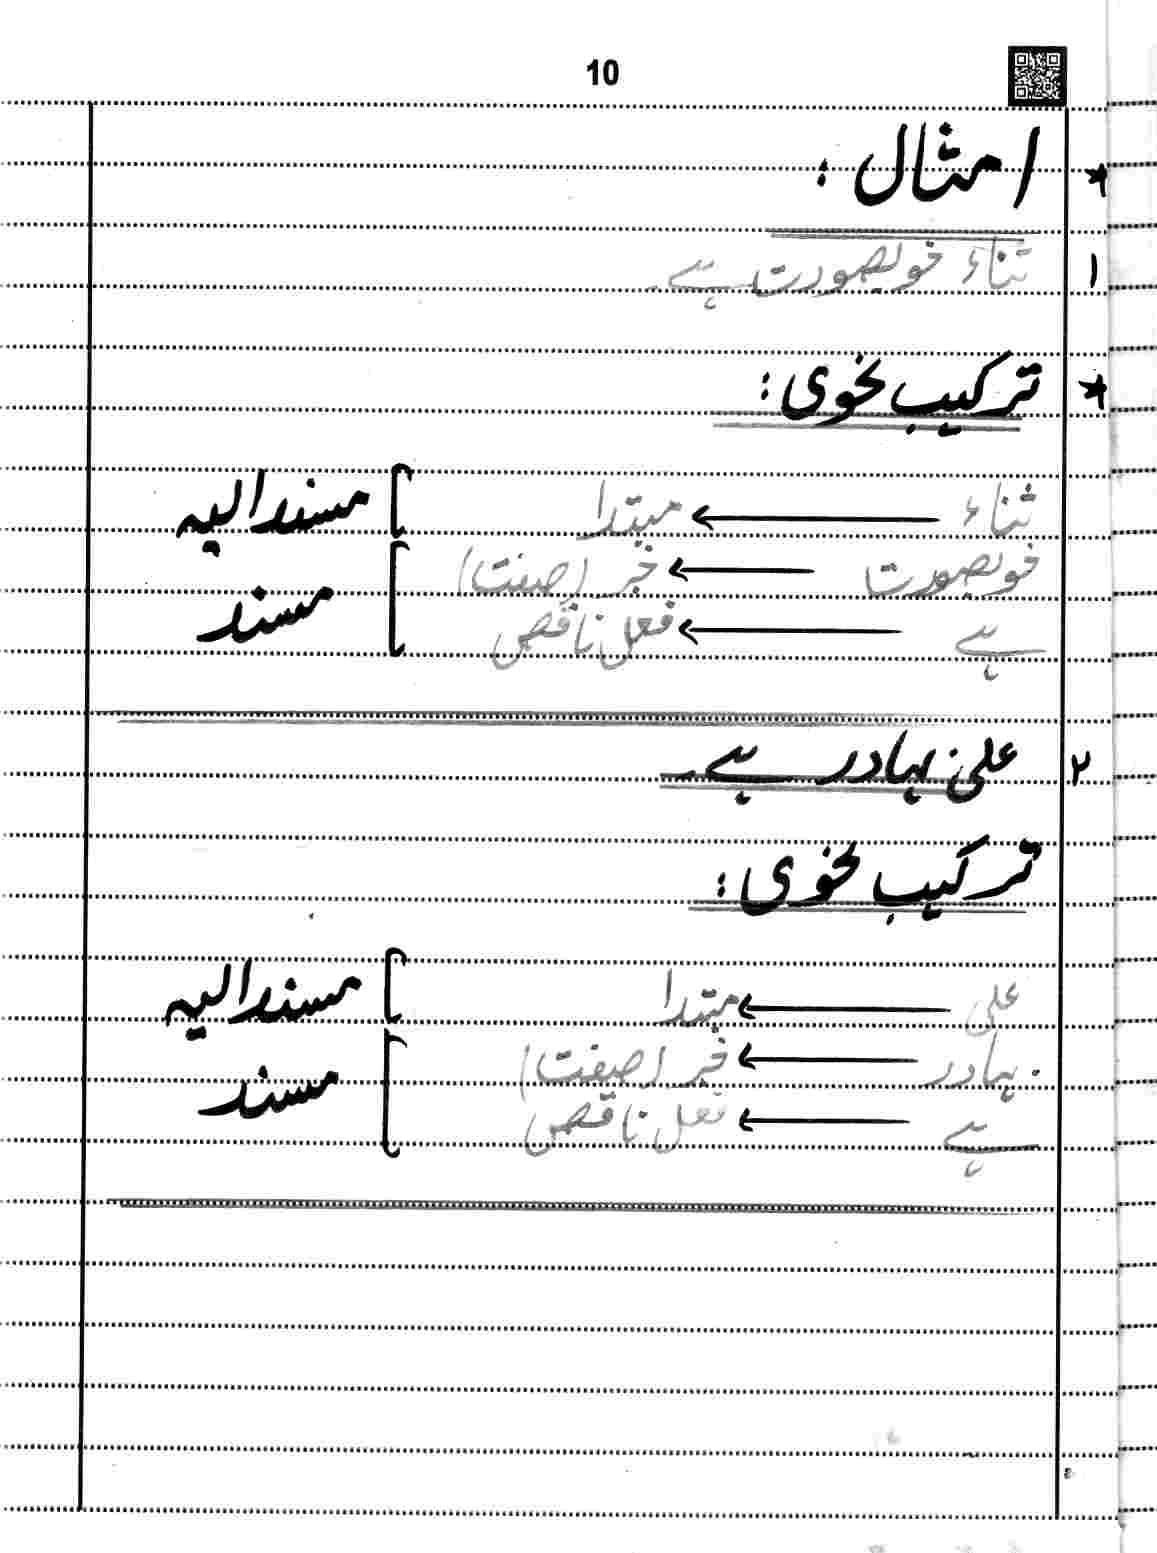 10
* امثال :
۱ ثناء خوبصورت ہے۔
* ترکیب نحوی :
ثناء ← مبتدا ] مسند الیہ
خوبصورت ← خبر (صفت)
ہے ← فعل ناقص ] مسند
۲ علی بہادر ہے۔
ترکیب نحوی :
علی ← مبتدا ] مسند الیہ
بہادر ← خبر (صفت)
ہے ← فعل ناقص ] مسند